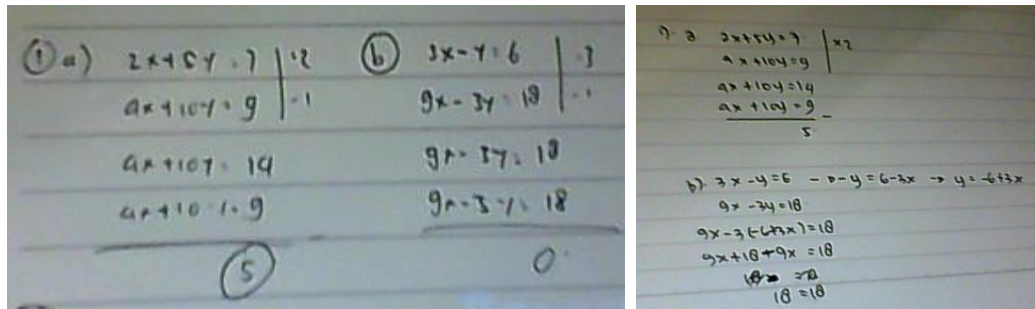 ① a) 2x+5y=7 | ·2
4x+10y=9 | ·1
4x+10y=14
4x+10y=9
⑤
ⓑ 3x-y=6 | ·3
9x-3y=18 | ·1
9x-3y=18
9x-3y=18
0
1). a 2x+5y=7 | x2
4x+10y=9
4x+10y=14
4x+10y=9 -
5
b). 3x-y=6 → -y=6-3x → y=-6+3x
9x-3y=18
9x-3(-6+3x)=18
9x+18-9x=18
18=18